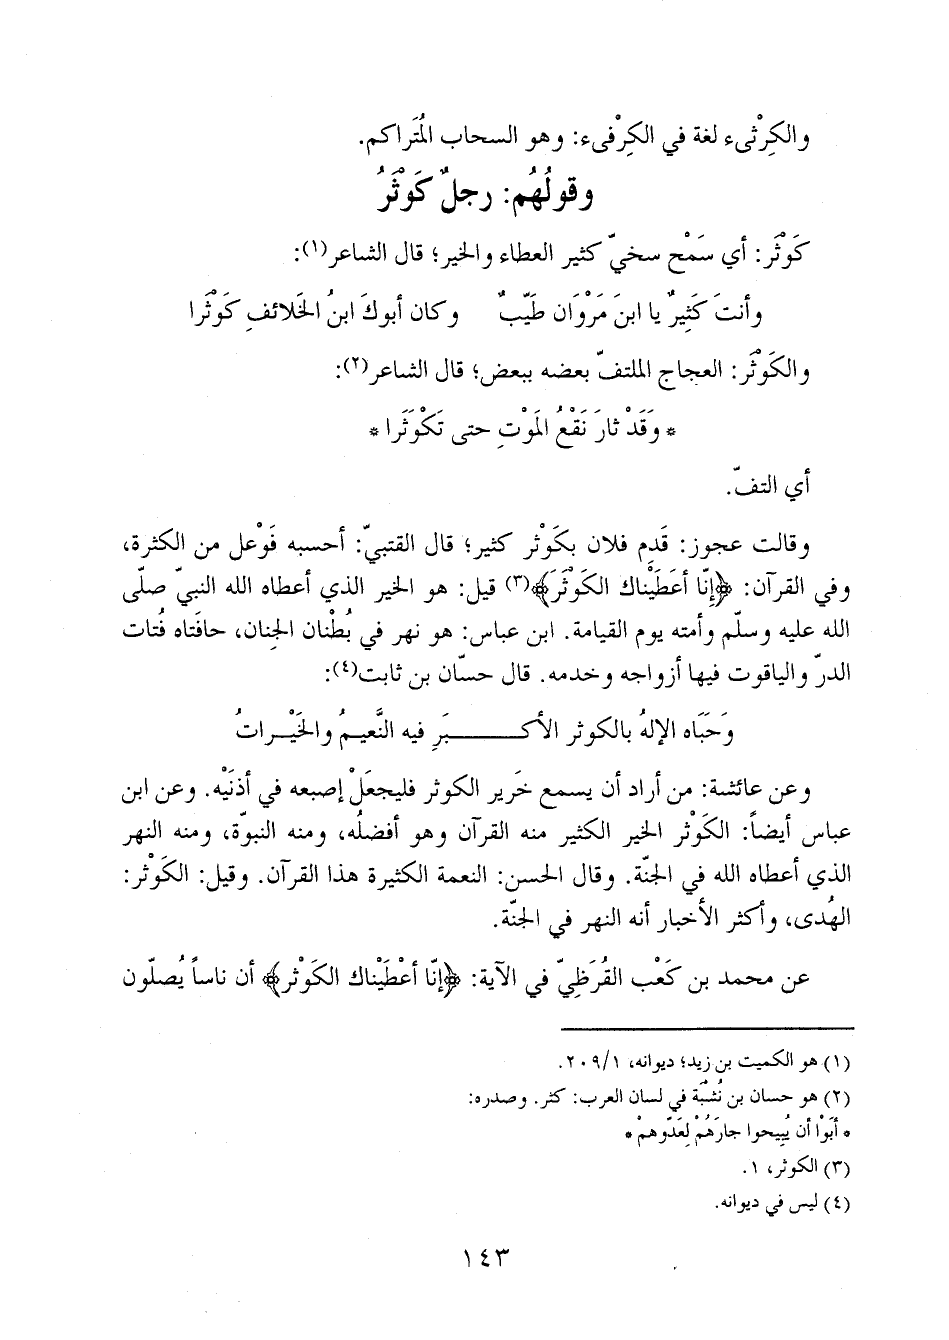 والكِرْثىء لغة في الكِرْفىء: وهو السحاب المُتَراكم.
وقولُهُم: رجلٌ كَوْثَرُ
كَوْثَر: أي سَمْح سخيّ كثير العطاء والخير؛ قال الشاعر(١):
وأنتَ كَثِيرٌ يا ابنَ مَرْوَان طَيّبٌ وكان أبوكَ ابنُ الخَلائفِ كَوْثَرا
والكَوْثَر: العجاج الملتفّ بعضه ببعض؛ قال الشاعر(٢):
* وَقَدْ ثارَ نَقْعُ المَوْتِ حتى تَكَوْثَرا *
أي التفّ.
وقالت عجوز: قَدِم فلان بكَوْثَر كثير؛ قال القتبيّ: أحسبه فَوْعل من الكثرة،
وفي القرآن: ﴿إِنّا أعَطَيْناك الكَوْثَرَ﴾(٣) قيل: هو الخير الذي أعطاه الله النبيّ صلّى
الله عليه وسلّم وأمته يوم القيامة. ابن عباس: هو نهر في بُطْنان الجنان، حافَتاه فُتات
الدرّ والياقوت فيها أزواجه وخدمه. قال حسّان بن ثابت(٤):
وَحَبَاه الإلهُ بالكوثر الأكـــــبَرِ فيه النَّعيـمُ والخَيْـراتُ
وعن عائشة: من أراد أن يسمع خَرير الكوثر فليجعَلْ إصبعه في أذنَيْه. وعن ابن
عباس أيضاً: الكَوْثر الخير الكثير منه القرآن وهو أفضلُه، ومنه النبوّة، ومنه النهر
الذي أعطاه الله في الجنّة. وقال الحسن: النعمة الكثيرة هذا القرآن. وقيل: الكَوْثر:
الهُدى، وأكثر الأخبار أنه النهر في الجنّة.
عن محمد بن كَعْب القُرَظِيّ في الآية: ﴿إنّا أعْطَيْناك الكَوْثر﴾ أن ناساً يُصلّون
(١) هو الكميت بن زيد؛ ديوانه، ٢٠٩/١.
(٢) هو حسان بن نُشْبَة في لسان العرب: كثر. وصدره:
* أبَوْا أن يُبِيحوا جارَهُمْ لِعَدّوهمْ *
(٣) الكوثر، ١.
(٤) ليس في ديوانه.
١٤٣